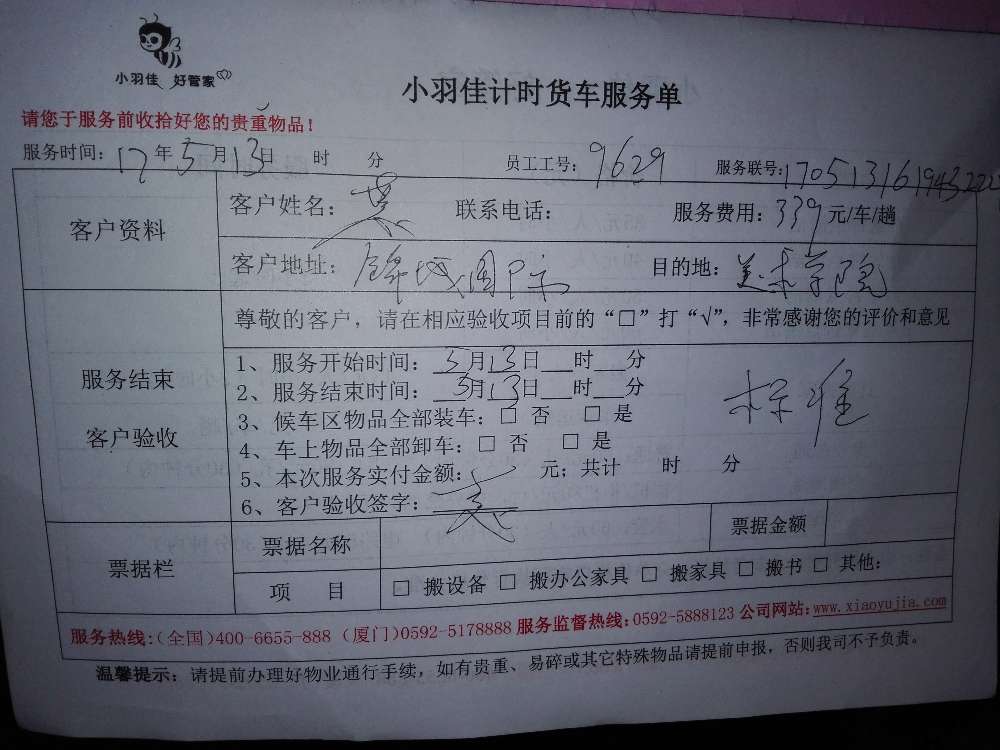 小羽佳 好管家
小羽佳计时货车服务单
请您于服务前收拾好您的贵重物品！
服务时间：17年5月13日 时 分 员工工号：9629 服务联号：170513161943222
客户资料
客户姓名： 联系电话： 服务费用：339元/车/趟
客户地址： 目的地：美术学院
服务结束
客户验收
尊敬的客户，请在相应验收项目前的“□”打“√”，非常感谢您的评价和意见
1、服务开始时间：5月13日__时__分
2、服务结束时间：5月13日__时__分
标准
3、候车区物品全部装车：□ 否 □ 是
4、车上物品全部卸车：□ 否 □ 是
5、本次服务实付金额： 元；共计 时 分
6、客户验收签字：
票据栏
票据名称 票据金额
项 目 □ 搬设备 □ 搬办公家具 □ 搬家具 □ 搬书 □ 其他：
服务热线：(全国)400-6655-888 (厦门)0592-5178888 服务监督热线：0592-5888123 公司网站：www.xiaoyujia.com
温馨提示：请提前办理好物业通行手续，如有贵重、易碎或其它特殊物品请提前申报，否则我司不予负责。